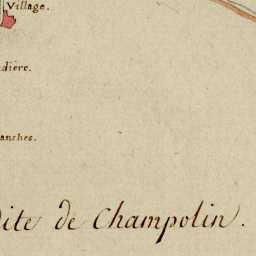 Village.
dière.
anches.
dite de Champolin.